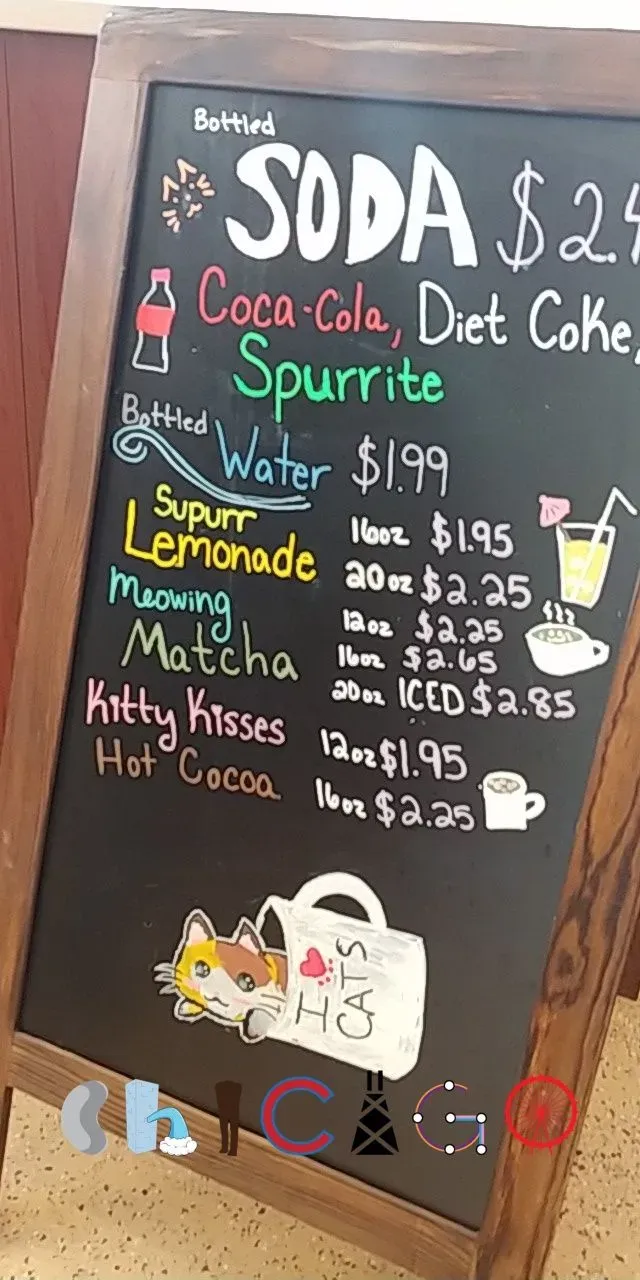 Bottled
SODA $2.4
Coca-Cola, Diet Coke,
Spurrite
Bottled
Water $1.99
Supurr
Lemonade
16oz $1.95
20oz $2.25
Meowing
Matcha
12oz $2.25
16oz $2.65
20oz ICED $2.85
Kitty Kisses
Hot Cocoa
12oz $1.95
16oz $2.25
I ♥
CATS
ChICAGO